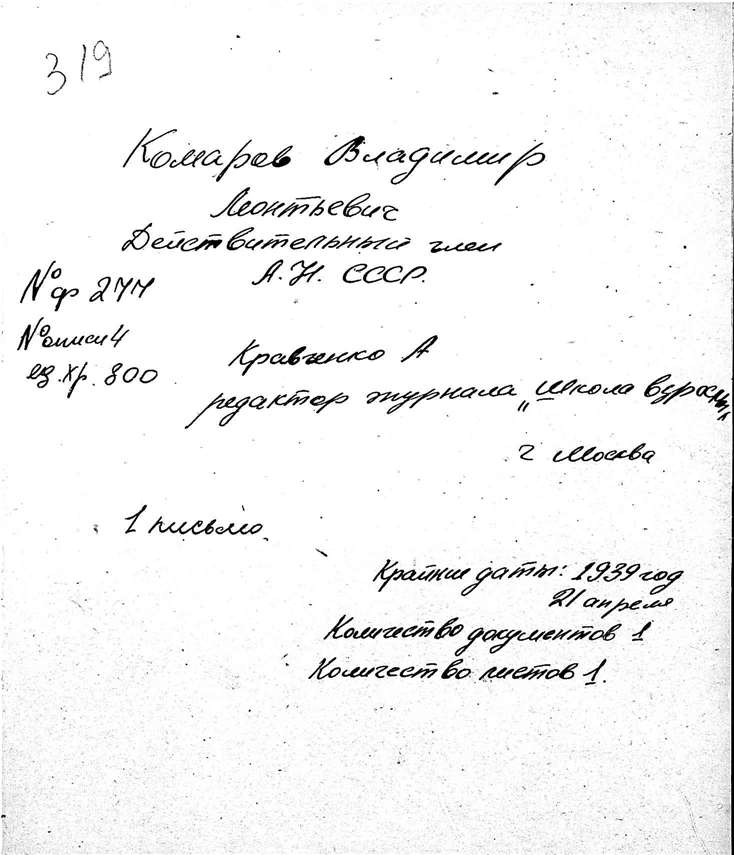 319
Комаров Владимир
Леонтьевич
Действительный член
А.Н. СССР.
№ ф 277
№ описи 4
ед. хр. 800
Кравченко А
редактор журнала „Школа взрослых"
г Москва
1 письмо
Крайние даты: 1939 год
21 апреля
Количество документов 1
Количество листов 1.